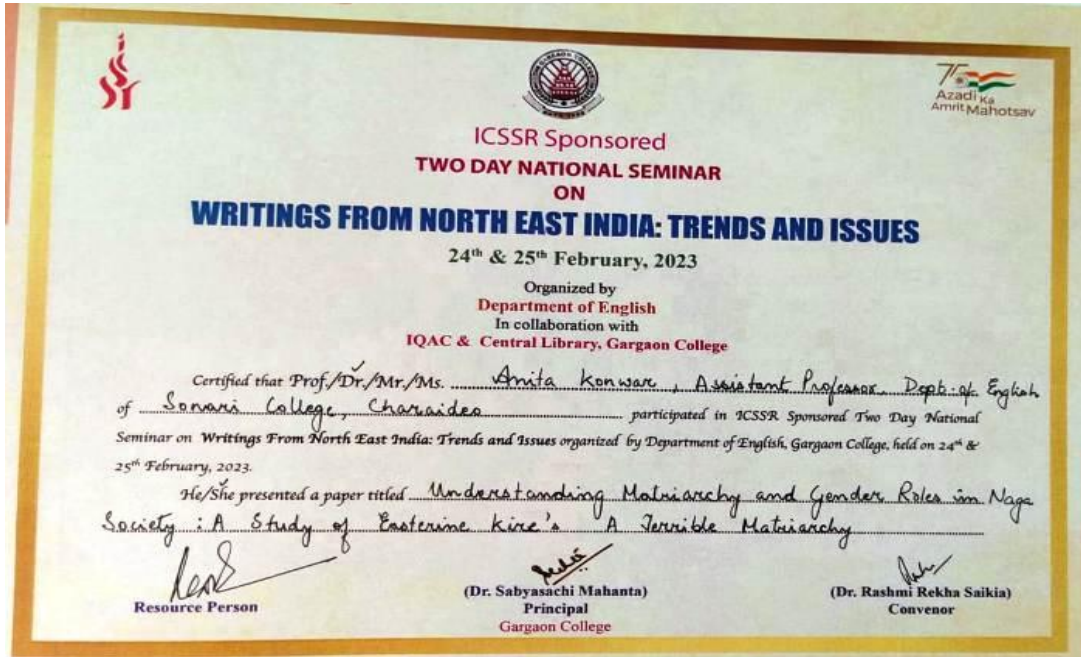 75
Azadi Ka
Amrit Mahotsav
ICSSR Sponsored
TWO DAY NATIONAL SEMINAR
ON
WRITINGS FROM NORTH EAST INDIA: TRENDS AND ISSUES
24th & 25th February, 2023
Organized by
Department of English
In collaboration with
IQAC & Central Library, Gargaon College
Certified that Prof./Dr./Mr./Ms. Anita Konwar, Assistant Professor Dept. of English
of Sonari College, Charaideo participated in ICSSR Sponsored Two Day National
Seminar on Writings From North East India: Trends and Issues organized by Department of English, Gargaon College, held on 24th &
25th February, 2023.
He/She presented a paper titled Understanding Matriarchy and Gender Roles in Naga
Society : A Study of Easterine Kire's A Terrible Matriarchy
Resource Person
(Dr. Sabyasachi Mahanta)
Principal
Gargaon College
(Dr. Rashmi Rekha Saikia)
Convenor